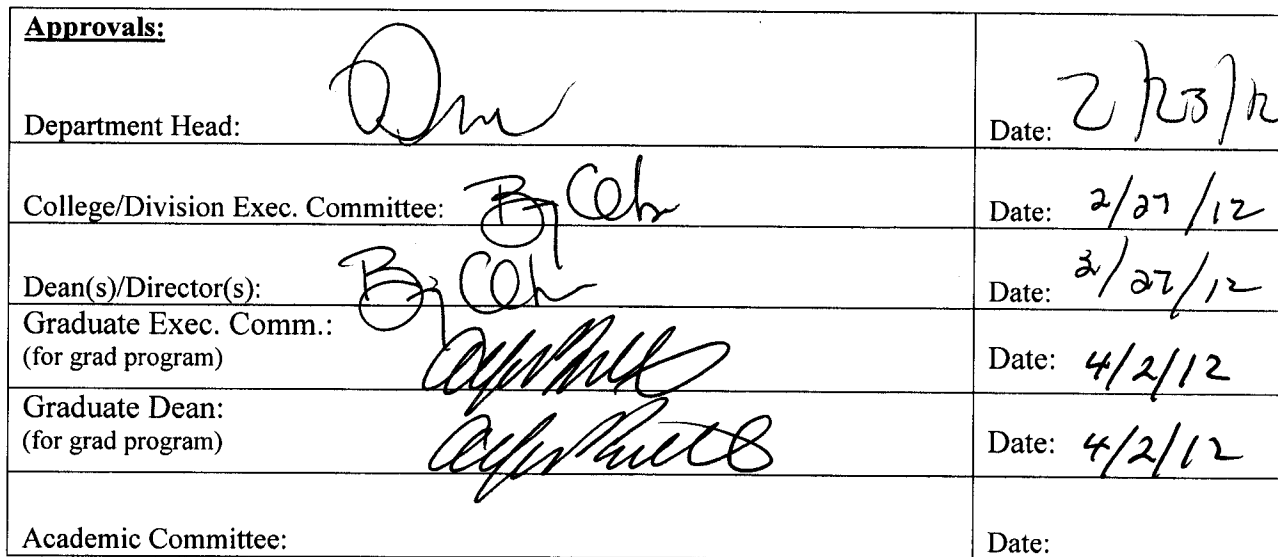 Approvals:
Department Head: Date: 2/23/12
College/Division Exec. Committee: Date: 2/27/12
Dean(s)/Director(s): Date: 2/27/12
Graduate Exec. Comm.:
(for grad program) Date: 4/2/12
Graduate Dean:
(for grad program) Date: 4/2/12
Academic Committee: Date: